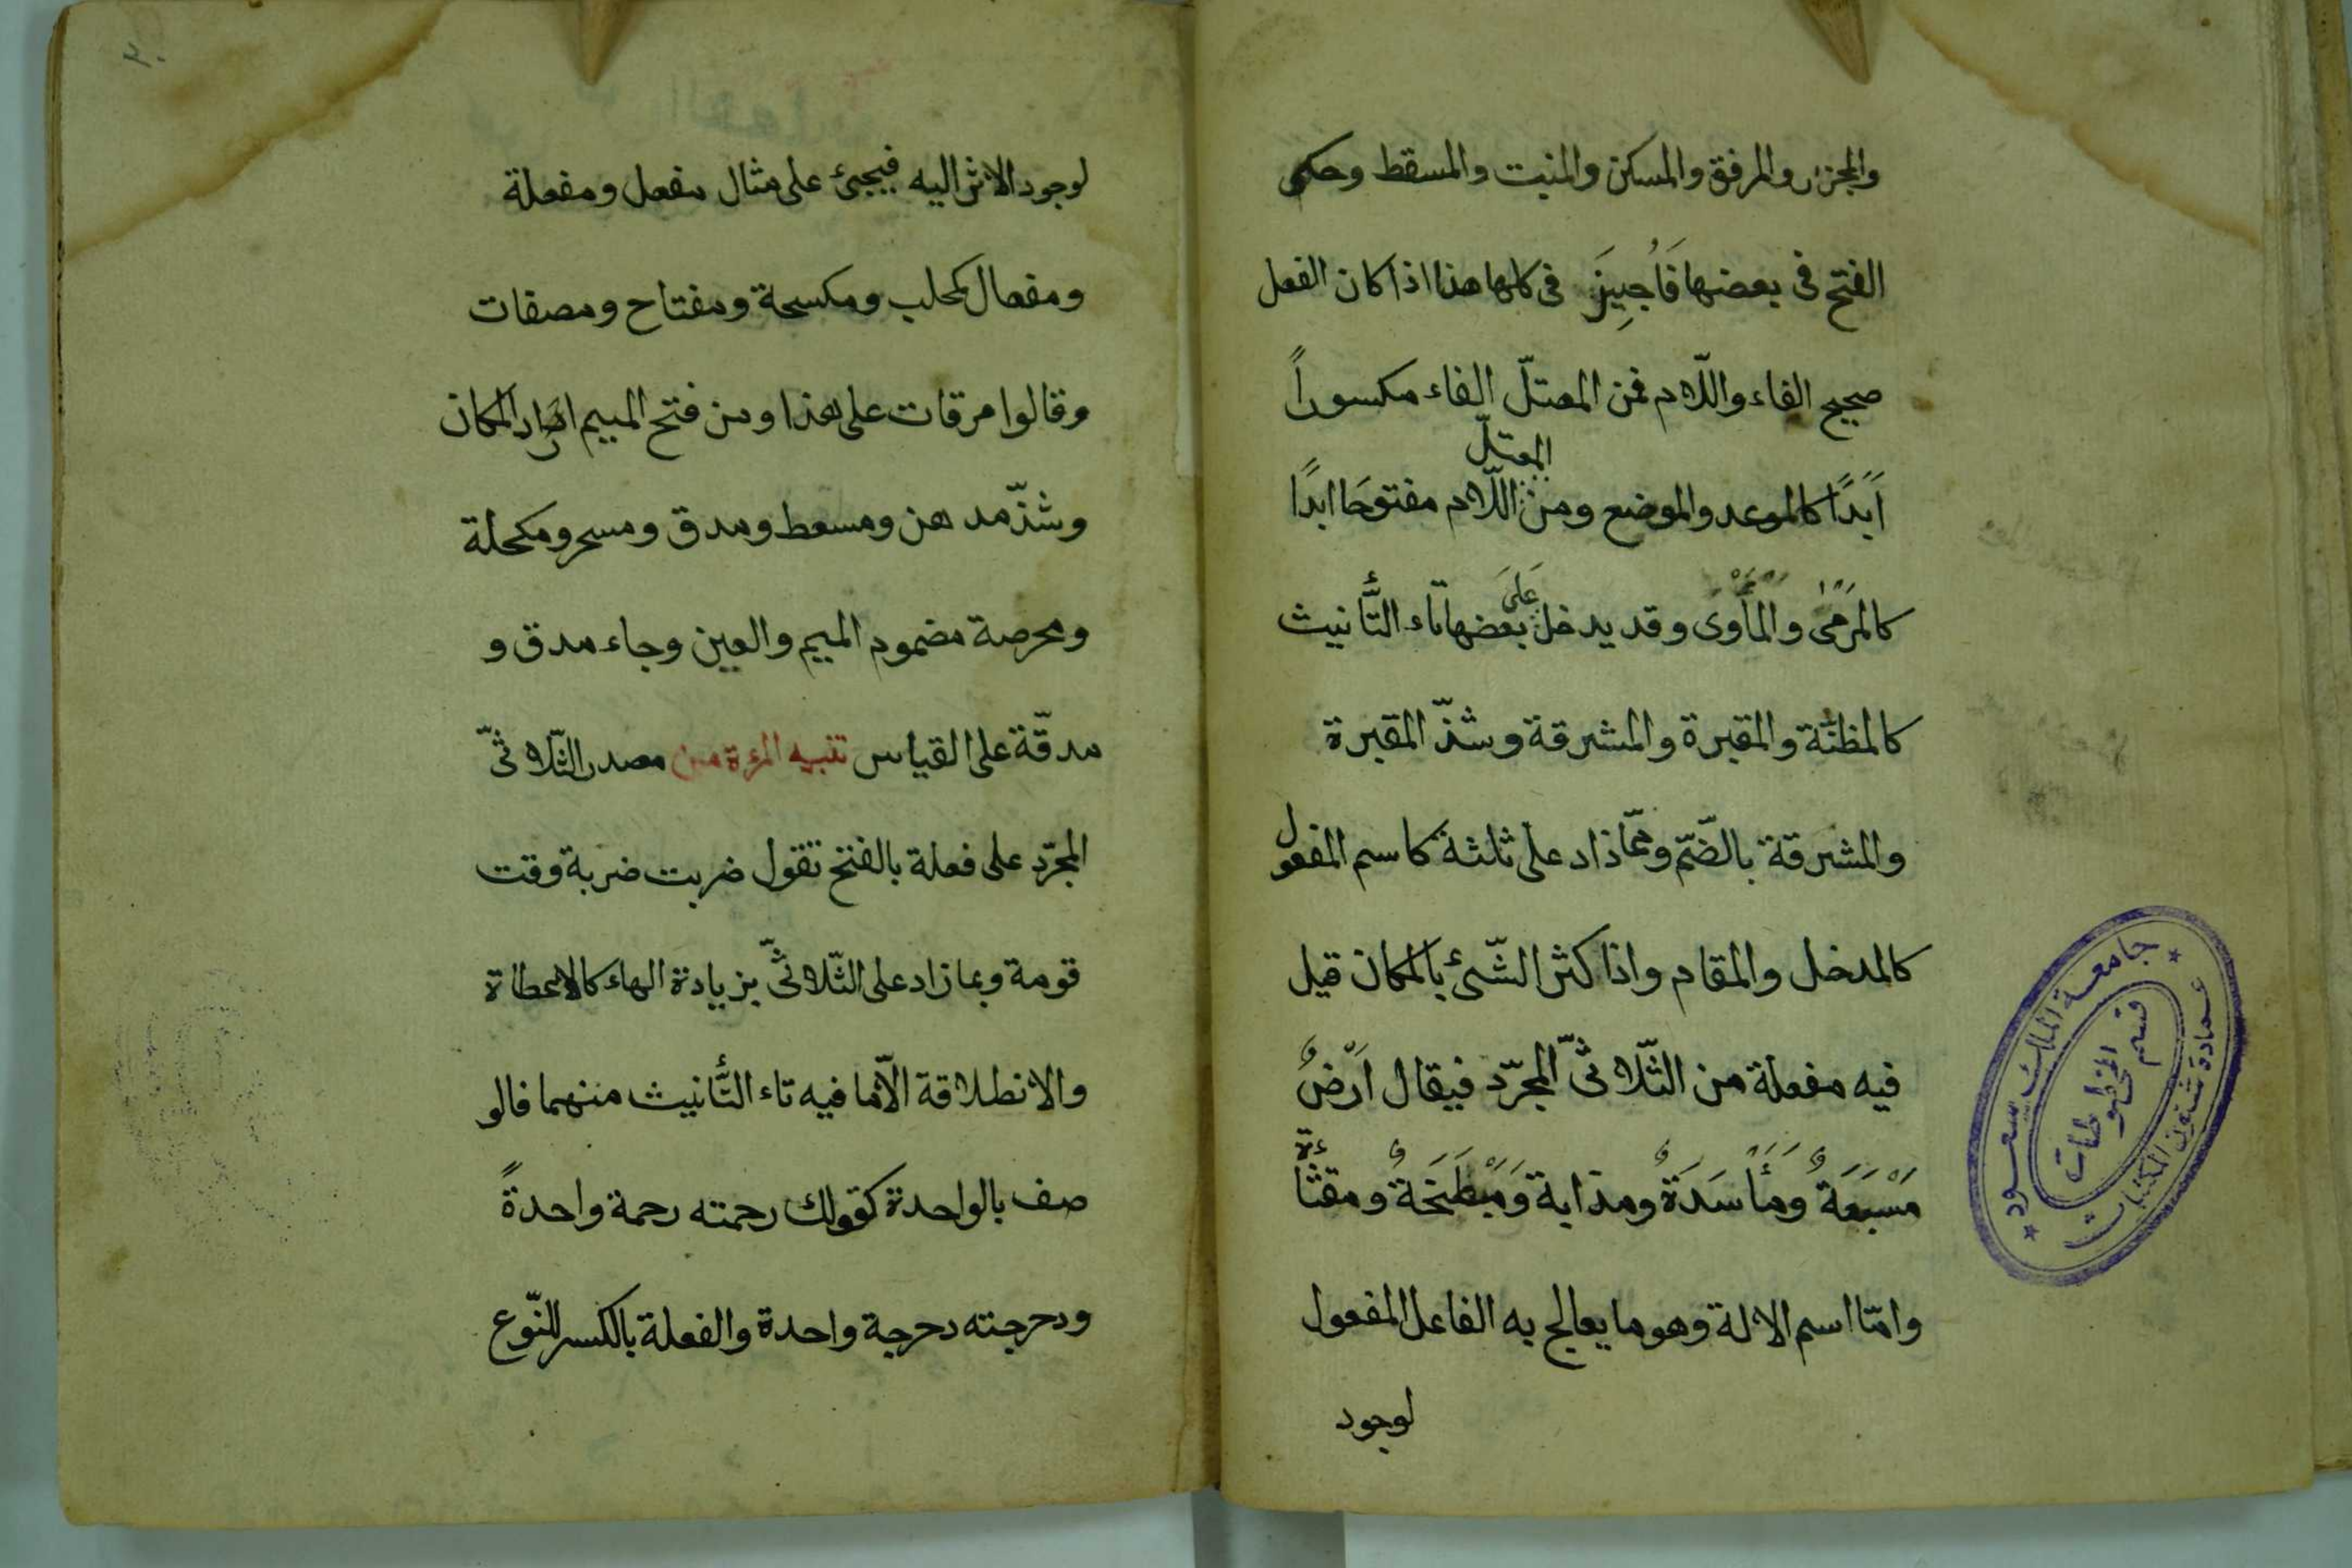 والمجزر والمرفق والمسكن والمنبت والمسقط وحكى
الفتح فى بعضها فَاُجِيزَ فى كلها هذا اذا كان الفعل
صحيح الفاء واللّام فمن المعتلّ الفاء مكسوراً
اَبَدًا كالموعد والموضع ومن المعتلّ اللّام مفتوحًا ابدًا
كالمَرْمٰى والمَأْوَى وقد يدخل عَلَى بعضها تاء التَّأنيث
كالمظنّة والمقبرة والمشرقة وشذّ المقبرة
والمشرقة بالضّمّ وممّا ذاد على ثلثة كاسم المفعول
كالمدخل والمقام واذا كثر الشّئ بالمكان قيل
فيه مفعلة من الثّلاثىّ المجرّد فيقال اَرْضٌ
مَسْبَعَةٌ ومَأْسَدَةٌ ومذابة ومَبْطَخَةٌ ومقثأة
وامّا اسم الالة وهو ما يعالج به الفاعل المفعول
لوجود
٢٠
لوجود الاثر اليه فيجئ على مثال مفعل ومفعلة
ومفعال كمحلب ومكسحة ومفتاح ومصفات
وقالوا مرقات على هذا ومن فتح الميم اراد المكان
وشذّ مدهن ومسعط ومدق ومسحر ومكحلة
ومحرصة مضموم الميم والعين وجاء مدق و
مدقّة على القياس تنبيه المرة من مصدر الثّلاثىّ
المجرّد على فعلة بالفتح تقول ضربت ضربة وقت
قومة وبما زاد على الثّلاثىّ بزيادة الهاء كالاعطاة
والانطلاقة الّا ما فيه تاء التَّأنيث منهما فالو
صف بالواحدة كقولك رحمته رحمة واحدةً
ودحرجته دحرجة واحدة والفعلة بالكسر للنّوع
جامعة الملك سعود
قسم المخطوطات
عمادة شئون المكتبات